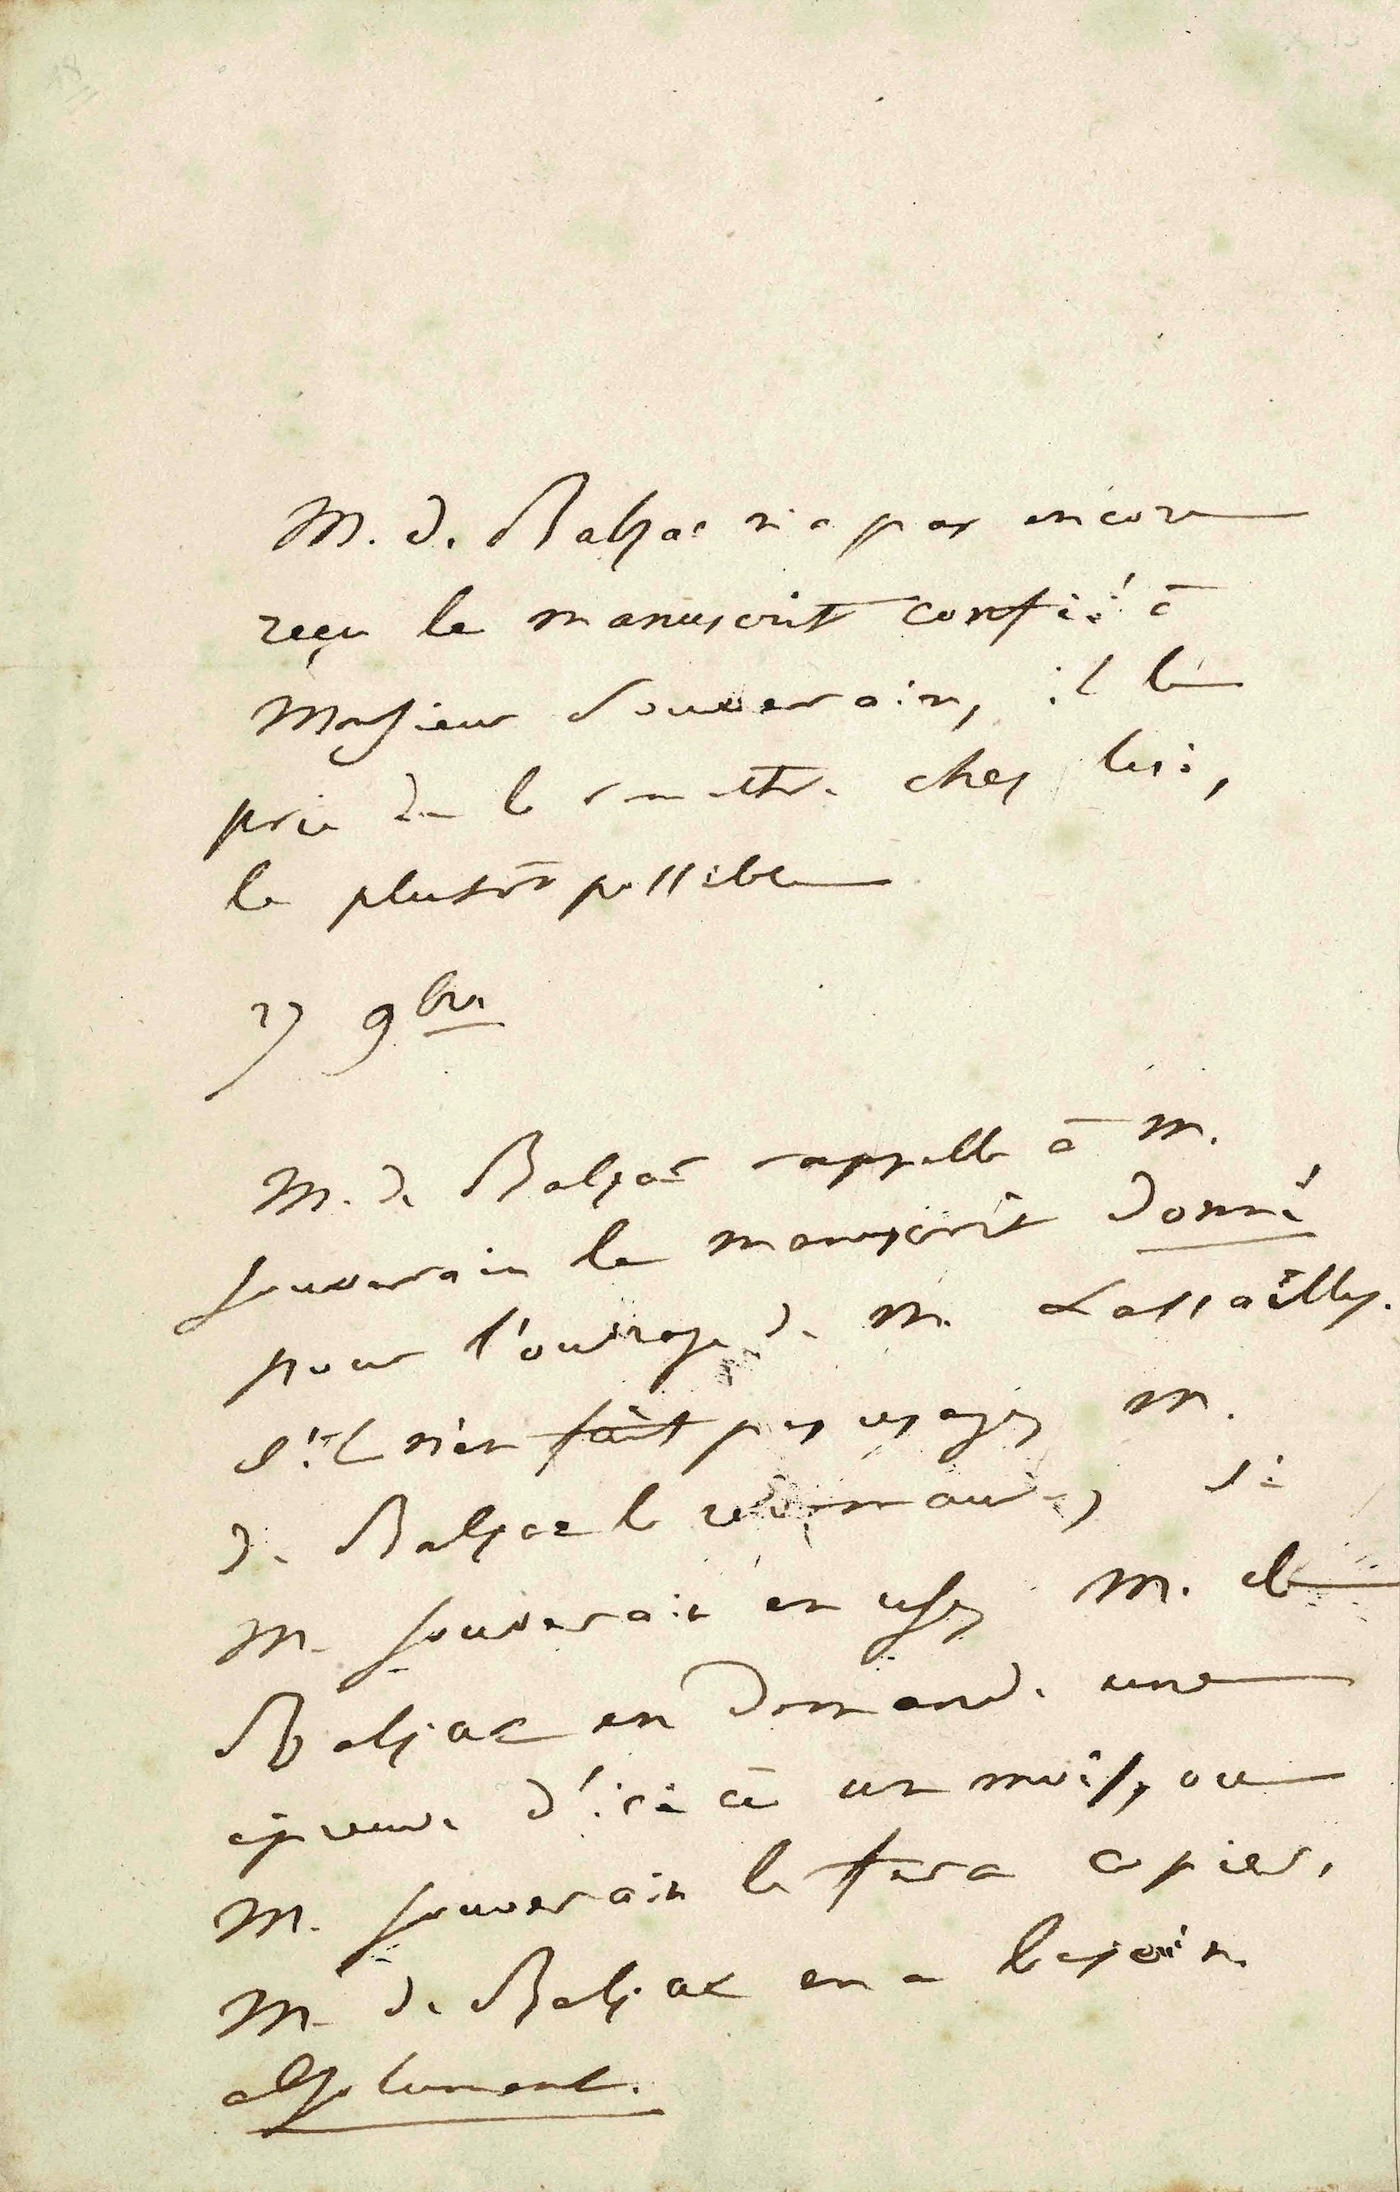 18
M. de Balzac n'a pas encore
reçu le manuscrit confié à
Monsieur Souverain, il le
prie de le remettre chez lui,
le plustôt possible
27 9bre
M. de Balzac rappelle à M.
Souverain le manuscrit donné
pour l'ouvrage de M. Lassailly.
S'il n'en fait pas usage, M.
de Balzac le redemande, si
M. Souverain en use, M. de
Balzac en demande une
épreuve d'ici à un mois, ou
M. Souverain le fera copier,
M. de Balzac en a besoin
absolument.